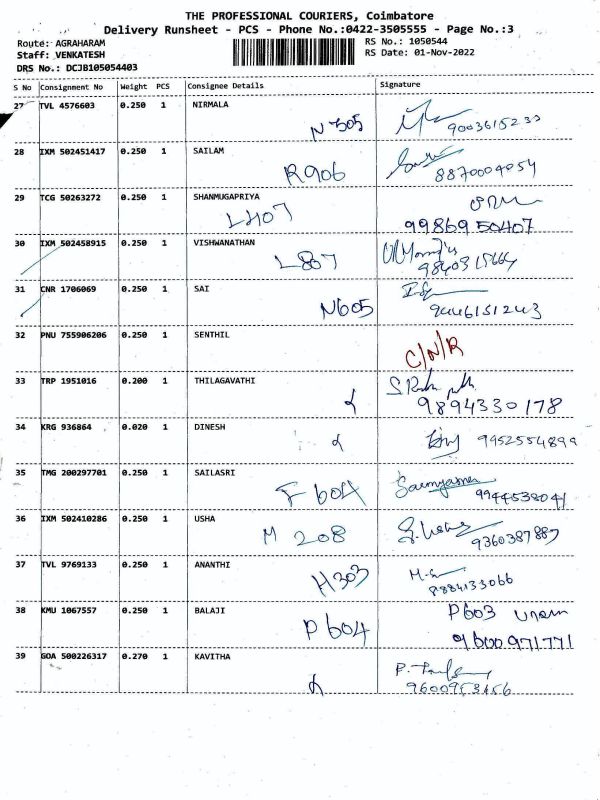 THE PROFESSIONAL COURIERS, Coimbatore
Delivery Runsheet - PCS - Phone No.:0422-3505555 - Page No.:3
Route: AGRAHARAM RS No.: 1050544
Staff: VENKATESH RS Date: 01-Nov-2022
DRS No.: DCJB105054403
S No Consignment No Weight PCS Consignee Details Signature
27 TVL 4576603 0.250 1 NIRMALA
N305 9003615233
28 IXM 502451417 0.250 1 SAILAM
R906 8870004054
29 TCG 50263272 0.250 1 SHANMUGAPRIYA
L407 9986950407
30 IXM 502458915 0.250 1 VISHWANATHAN
L807
31 CNR 1706069 0.250 1 SAI
N605 9446151243
32 PNU 755906206 0.250 1 SENTHIL
C/N/R
33 TRP 1951016 0.200 1 THILAGAVATHI
9894330178
34 KRG 936864 0.020 1 DINESH
9952554899
35 TMG 200297701 0.250 1 SAILASRI
F 604 9944538041
36 IXM 502410286 0.250 1 USHA
M 208 9360387887
37 TVL 9769133 0.250 1 ANANTHI
H303 8884133066
38 KMU 1067557 0.250 1 BALAJI
P604 P603
9600971771
39 GOA 500226317 0.270 1 KAVITHA
9600953456